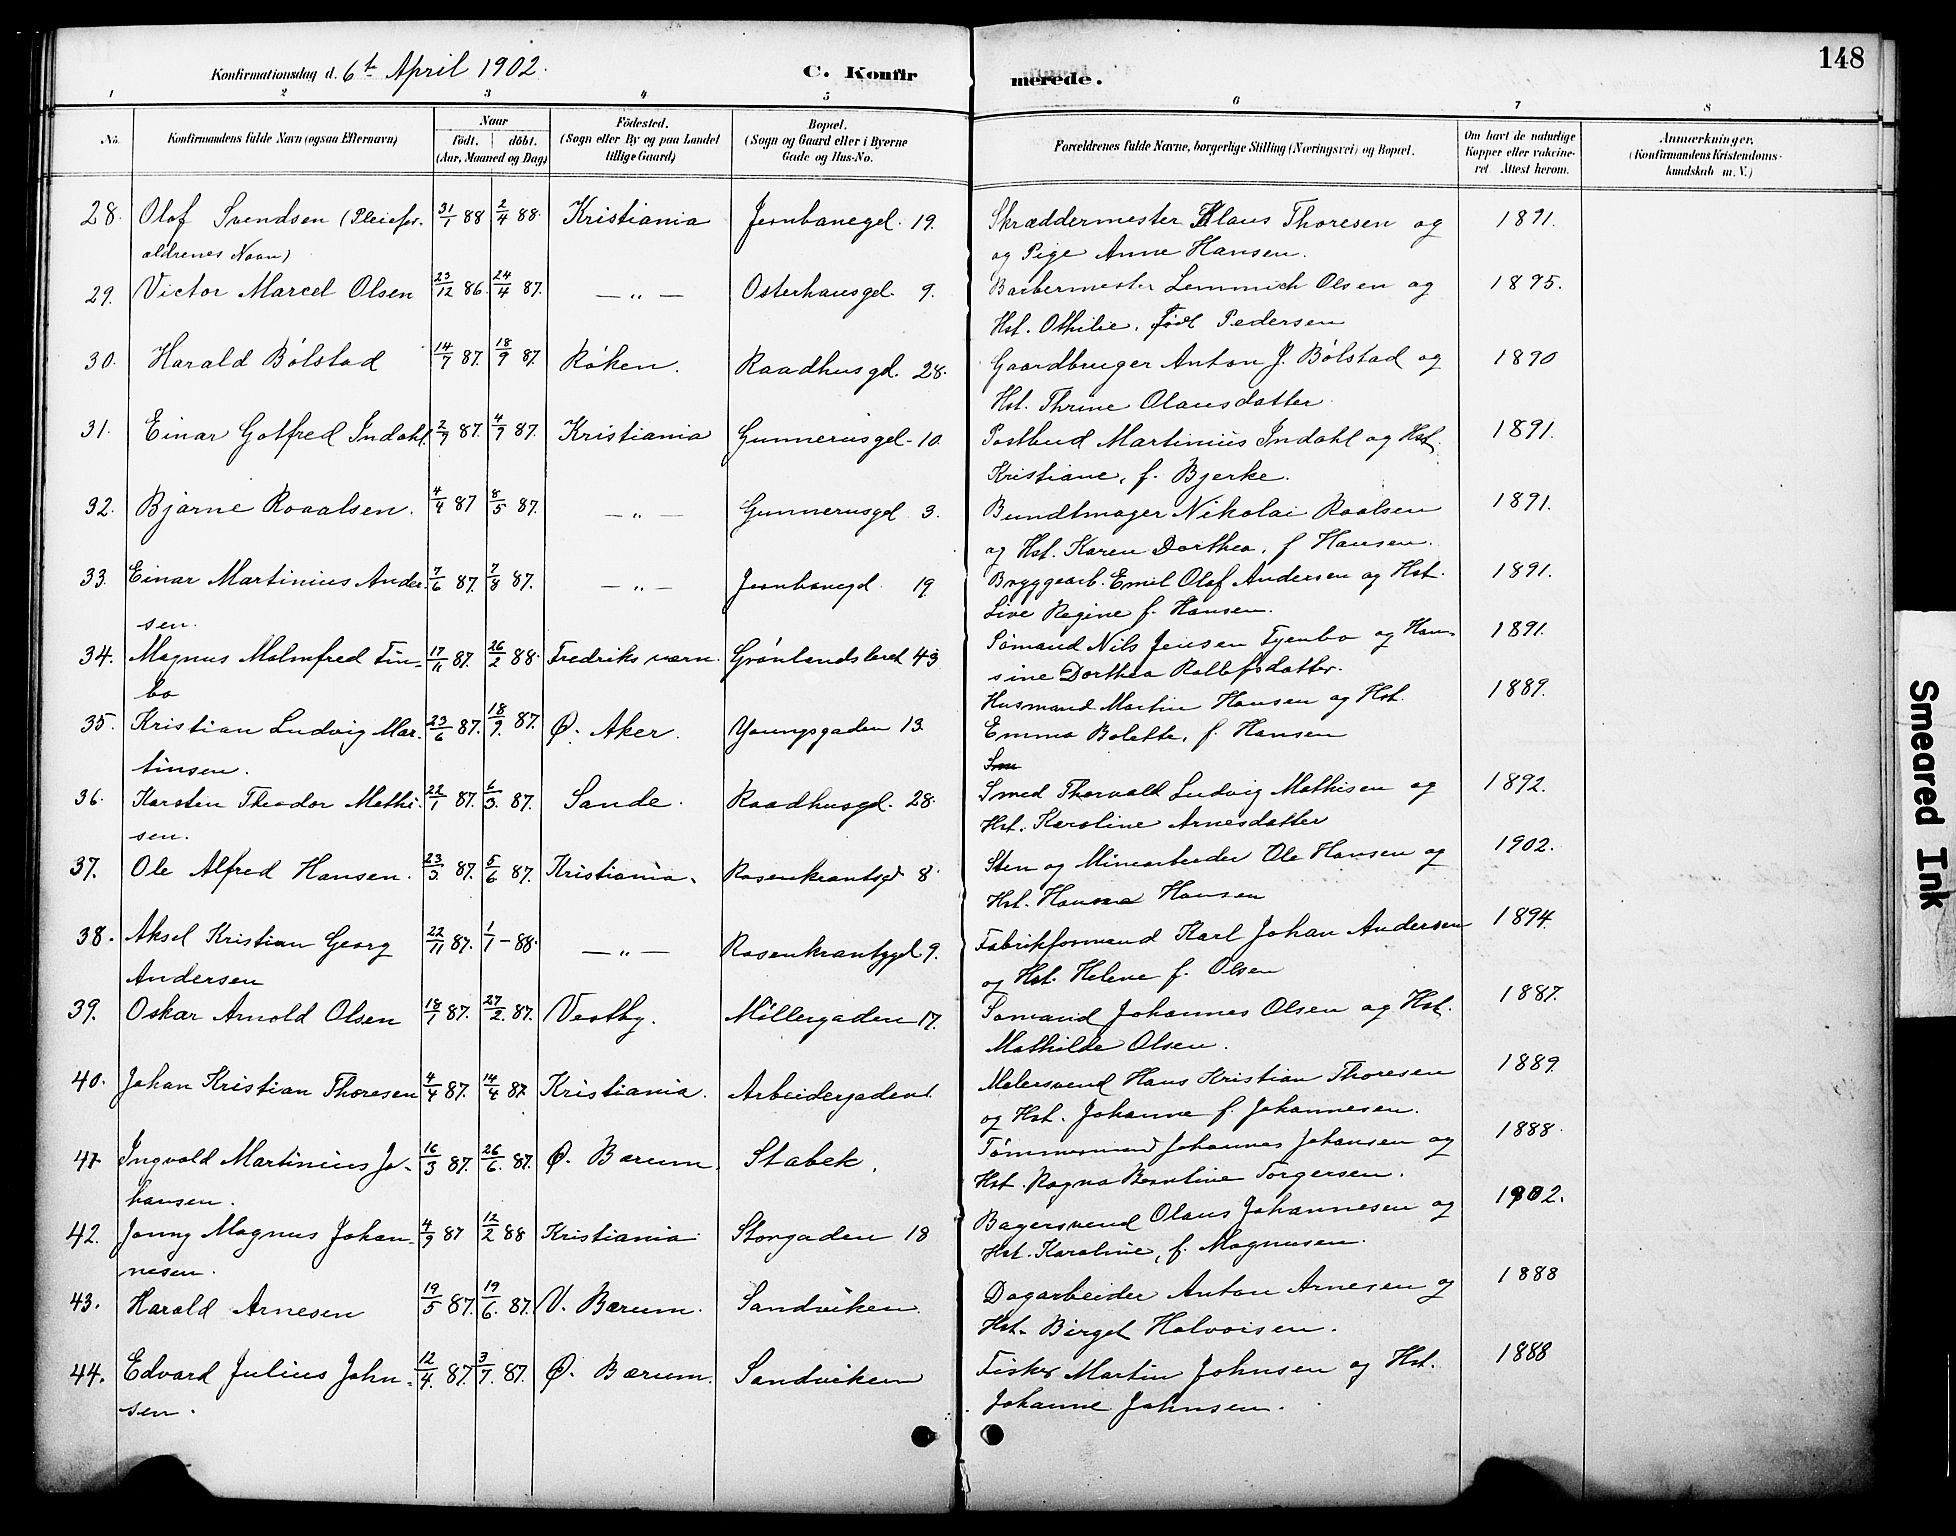 148
Konfirmationsdag d. 6te April 1902.
C. Konfir
merede.
1 2 3 4 5 6 7 8
No.
Konfirmandens fulde Navn (ogsaa Efternavn)
Naar
født. | døbt.
(Aar, Maaned og Dag)
Fødested.
(Sogn eller By og paa Landet
tillige Gaard)
Bopæl.
(Sogn og Gaard eller i Byerne
Gade og Hus-No.
Forældrenes fulde Navne, borgerlige Stilling (Næringsvei) og Bopæl.
Om havt de naturlige
Kopper eller vakcine-
ret. Attest herom.
Anmærkninger.
(Konfirmandens Kristendoms-
kundskab m. V.)
28. Olaf Svendsen (Pleiefor- 31/1 88 2/4 88. Kristiania Jernbanegd. 19. Skræddermester Klaus Thoresen og 1891.
ældrenes Navn) og Pige Anna Hansen.
29. Victor Marcel Olsen 23/12 86. 24/4 87. — " — Osterhausgd. 9. Barbermester Lemmich Olsen og 1895.
Hst. Othilie. Født Pedersen
30. Harald Bølstad 14/7 87. 18/9 87. Røken. Raadhusgd. 28. Gaardbruger Anton J. Bølstad og 1890
Hst. Thrine Olausdatter.
31. Einar Gotfred Indahl 2/7 87. 4/9 87. Kristiania Gunnerusgd. 10. Postbud Martinius Indahl og Hst. 1891.
Kristiane, f. Bjerke.
32. Bjarne Roaalsen. 4/4 87 8/5 87. — " — Gunnerusgd 3. Bundtmager Nikolai Raalsen 1891.
og Hst. Karen Dorthea, f Hansen.
33. Einar Martinius Ander- 7/6 87. 7/8 87. — " — Jernbanegd. 19. Bryggearb. Emil Olaf Andersen og Hst. 1891.
sen. Live Regine f. Hansen.
34. Magnus Malmfred Tin- 17/11 87. 26/2 88. Fredriksværn. Grønlandsleret 43 Sømand Nils Jensen Tyenbo og Han- 1891.
bo sine Dorthea Rollefsdatter.
35. Kristian Ludvig Mar- 23/6 87. 18/9. 87. Ø. Aker. Youngsgaden 13. Husmand Martin Hansen og Hst. 1889.
tinsen. Emma Bolette, f. Hansen
Sm
36. Karsten Theodor Mathi- 22/1 87. 6/3 87. Sande. Raadhusgd. 28. Smed Thorvald Ludvig Mathisen og 1892.
sen. Hst. Karoline Arnesdatter
37. Ole Alfred Hansen. 23/3 87. 5/6 87. Kristiania. Rosenkrantsgd 8. Sten og Minearbeider Ole Hansen og 1902.
Hst. Hanna Hansen
38. Aksel Kristian Georg 22/11 87. 1/1 - 88. — " — Rosenkrantzgd 9. Fabrikformand Karl Johan Andersen 1894.
Andersen og Hst. Helene f. Olsen
39. Oskar Arnold Olsen 18/1 87. 27/2. 87. Vestby. Møllergaden 17. Sømand Johannes Olsen og Hst. 1887.
Mathilde Olsen.
40. Johan Kristian Thoresen 4/4 87. 14/4 87. Kristiania. Arbeidergaden 1. Malersvend Hans Kristian Thoresen 1889.
og Hst. Johanne f. Johannesen.
41. Ingvald Martinius Jo- 16/3 87. 26/6. 87. Ø. Bærum. Stabek. Tømmermand Johannes Johansen og 1888.
hansen. Hst. Ragna Berntine Torgersen.
42. Jonny Magnus Johan- 4/9 87 12/2 88 Kristiania. Storgaden 18 Bagersvend Olaus Johannesen og 1902.
nesen. Hst. Karoline, f. Magnusen.
43. Harald Arnesen 19/5 87. 19/6. 87. V. Bærum. Sandviken. Dagarbeider Anton Arnesen og 1888
Hst. Birget Halvoisen.
44. Edvard Julius John- 12/4. 87. 3/7. 87. Ø. Bærum. Sandviken Fisker Martin Johnsen og Hst. 1888
sen. Johanne Johnsen.
Smeared Ink